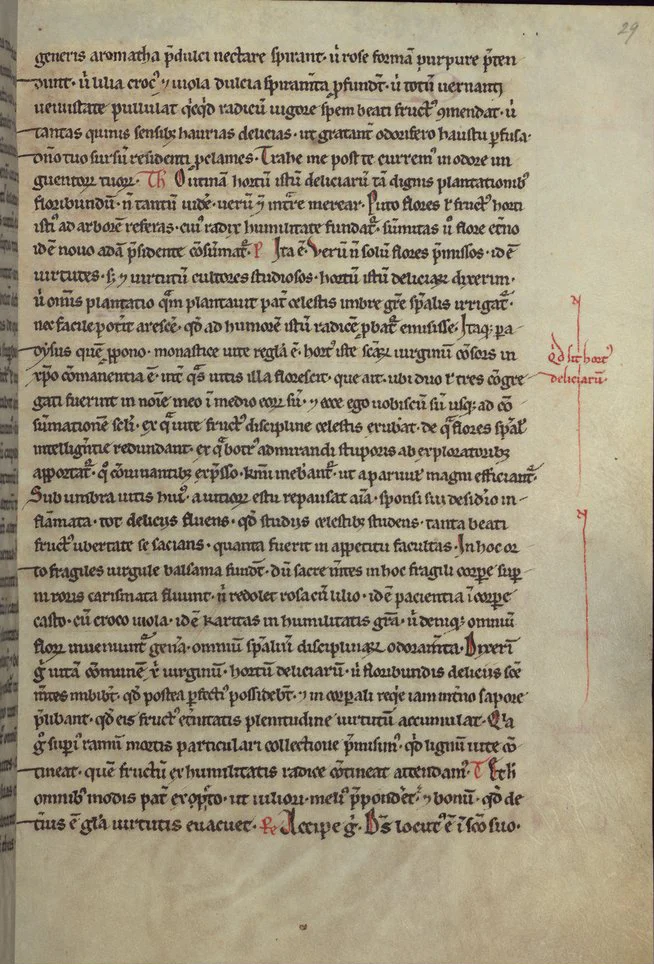 29
generis aromatha p̄dulci nectare spirant· ñ rose formā purpure p̄ten
dunt· ñ lilia croc᷒ ⁊ uiola dulcia spiramīta p̄fundt̄· ñ totū uernanti
uenustate pullulat qͥcqͥd radicū uigore spem beati fruct᷒ ꝯmendat· ñ
tantas quinis sensibꝫ haurias delicias· ut gratanť odorifero haustu ꝑfusa·
dn̄o tuo sursū residenti ꝓclames· Trahe me post te currem᷒ in odore un
guentoꝝ tuoꝝ· Th Oūtinā hortū istū deliciarū tā dignis plantationibꝫ
floribundū· n̄ tantū uidē· uerū ⁊ int̄re merear· Puto flores ł fruct᷒ horti
isti᷒ ad arborē referas· cui᷒ radix humilitate fundať· sūmitas ů flore et̄no
id ē nouo adā p̄sidente cōsūmať· P Ita ē· Verū n̄ solū flores p̄missos· id ē
uirtutes· sꝫ ⁊ uirtutū cultores studiosos· hortū istū deliciaꝝ dixerim·
ñ omīs plantatio qͣm plantauit pať celestis imbre gr̄e sp̄alis irrigať·
nec facile potit̄ arescē· qd̄ ad humorē istū radicē ꝓbať emisisse· Itaqꝫ pa
dysus quē ꝓpono· monastice uite regl̄a ē· hort᷒ iste scāꝝ uirginū cōsors in
xp̄o cōmanentia ē· int̄ qͣs uitis illa florescit· que ait· ubi duo ł tres cōgre
gati fuerint in noīe meo ī medio eoꝝ sū· ⁊ ecce ego uobiscū sū usqꝫ ad cō
sūmationē scl̄i· ex qͣ uite fruct᷒ discipline celestis erūbať· de qͣ flores sp̄al
intelligentie redundant· ex qͣ botr᷒ admirandi stuporis ab exploratoribꝫ
apportať· qͦ cōmunantibꝫ exp̄sso· inebriant̄· ut a paruis magni efficianť·
Sub umbra uitis hui᷒· a uitioꝝ estu repausat aīa· sponsi sui desid̄io in-
flāmata· tot deliciis fluens· qd̄ studiis celestibꝫ studens· tanta beati
fruct᷒ ubertate se sacians· quanta fuerit in appetitu facultas· In hoc or
to fragiles uirgule balsama fundt̄· dū sacre m̄tes in hoc fragili corꝑe suꝑ
ni roris carismata fluunt· ñ redolet rosa cū lilio· id ē pacientia ī corꝑe
casto· cū croco uiola· id ē karitas in humilitatis gr̄a· ñ deniqꝫ omniū
floꝝ inueniunť gen̄a· omniū sp̄aliū disciplinaꝝ odoram̄ta· Dixeri
g̊ uitā cōmunē xp̄i uirginū· hortū deliciarū· ñ floribundis deliciis sc̄e
m̄tes imbibt̄· qd̄ postea ꝑfecti᷒ possidebt̄· ⁊ in corꝑali req̄ie iam int̄no sapore
p̄libant· qd̄ eis fruct᷒ et̄nitatis plenitudine uirtutū accumulat· Qͥa
g̊ supi᷒ ramū mortis particulari collectione p̄misim᷒· qd̄ lignū uite cō
tineat· quē fructū ex humilitatis radice cōtineat attendam᷒· Th
omnibꝫ modis pať ex oꝑto· ut uiliori· meli᷒ p̄pondet̄· ⁊ bonū· qd̄ de
teri᷒ ē gl̄a uirtutis euacuet· Pe Accipe g̊· D̄s locut᷒ ē ī sc̄o suo·
Qd̄ sit hort᷒
deliciarū·